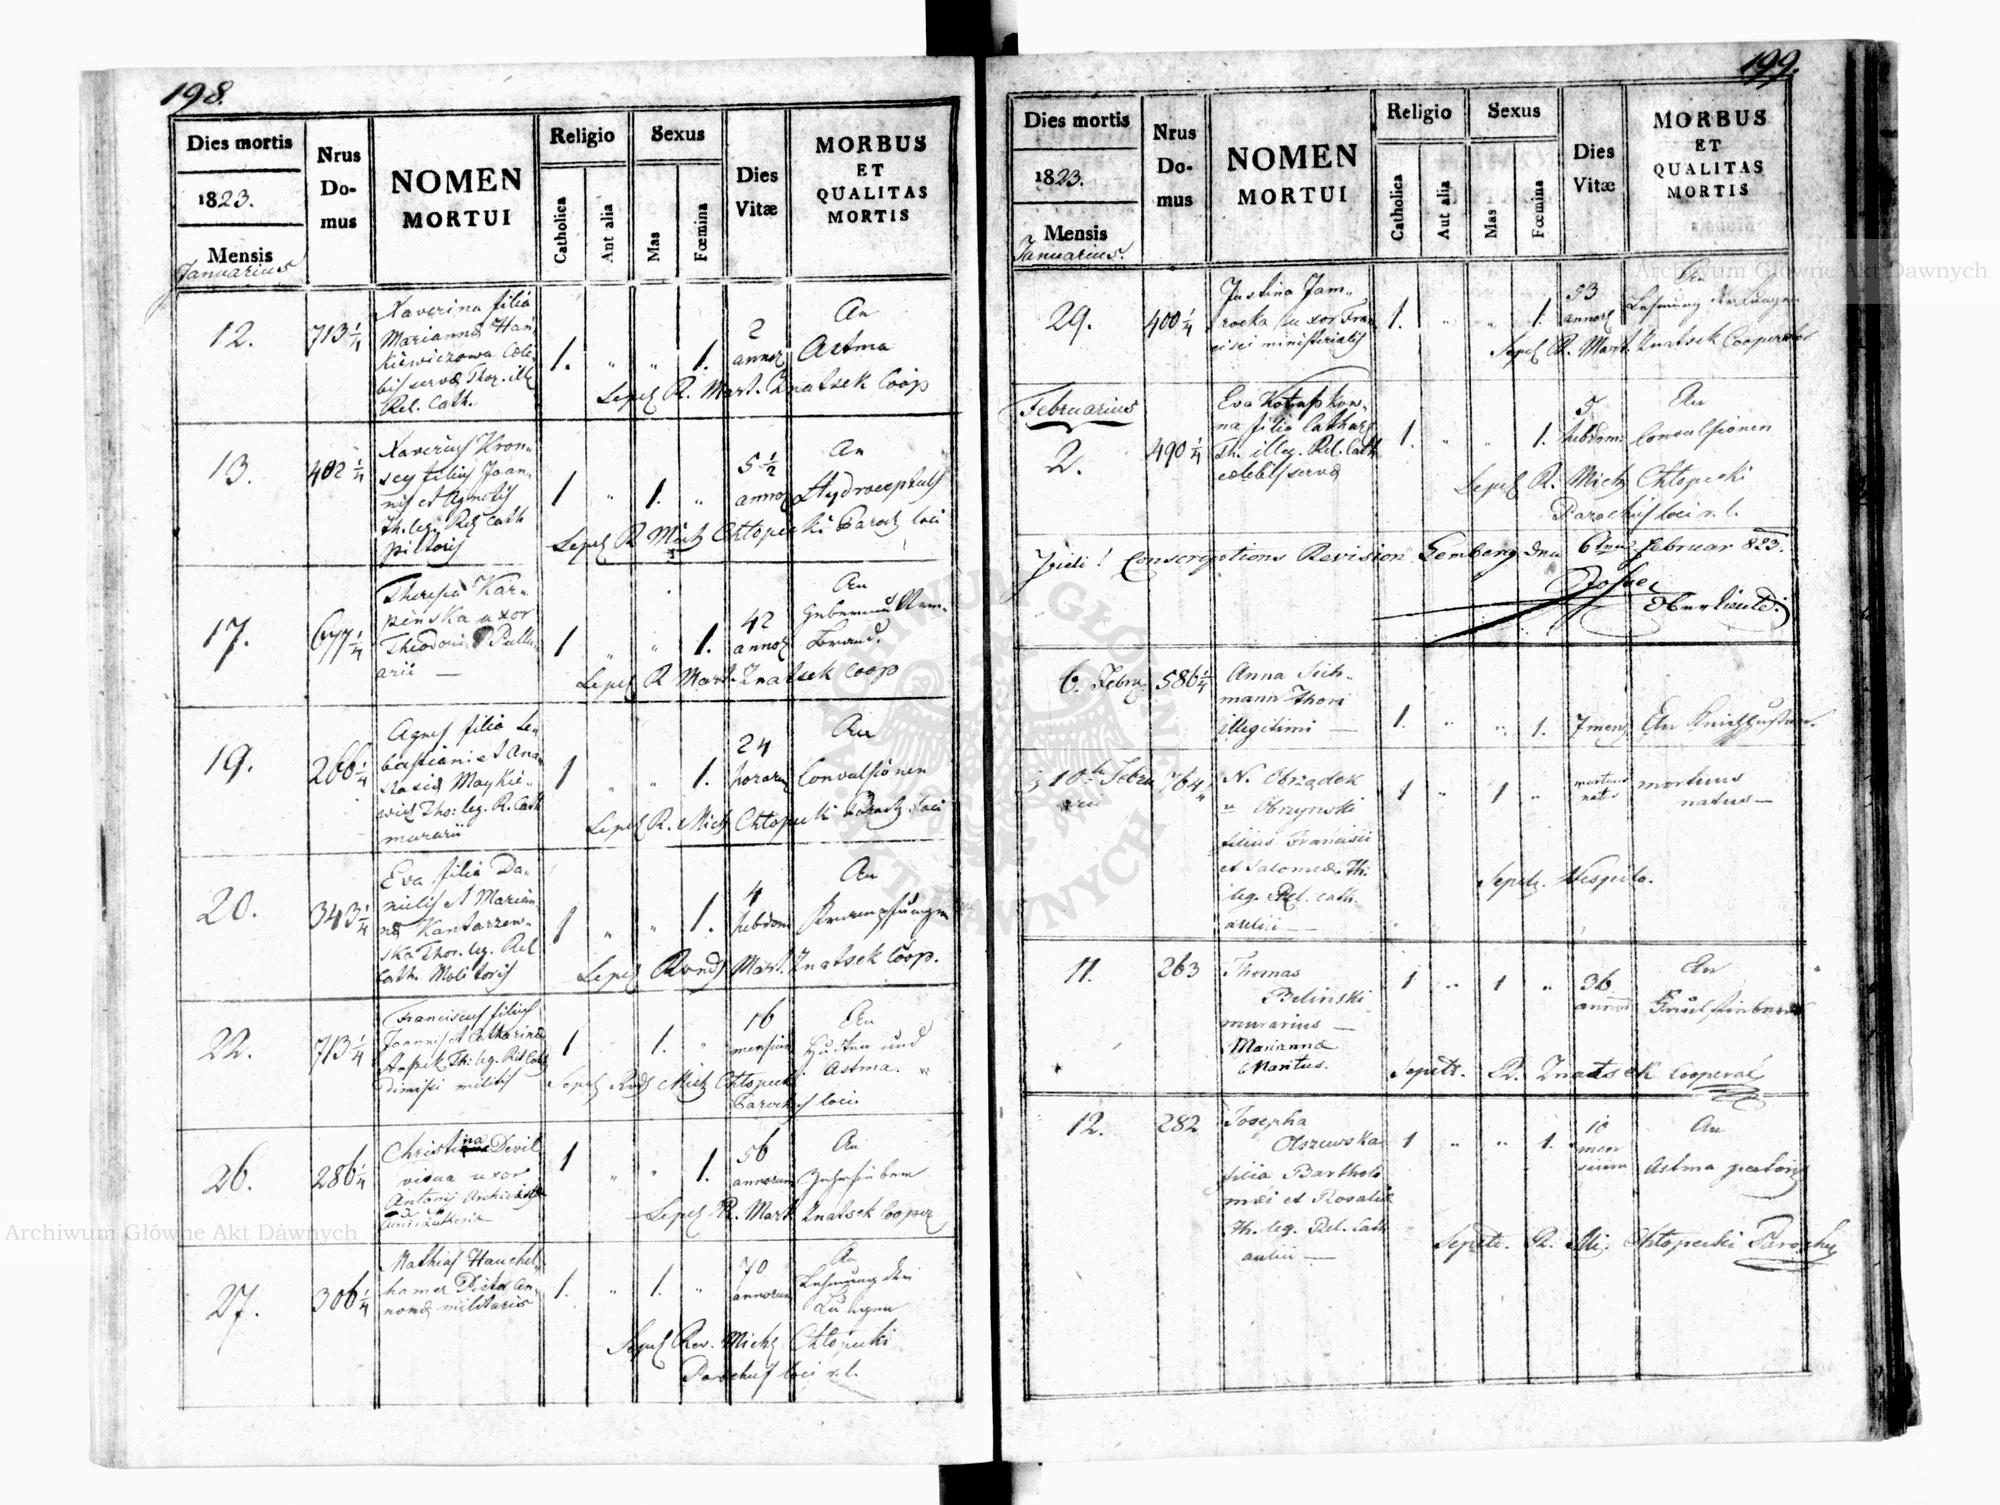 198.
Dies mortis
1823.
Mensis
Januarius
Nrus
Do-
mus
NOMEN
MORTUI
Religio
Catholica
Aut alia
Sexus
Mas
Fœmina
Dies
Vitæ
MORBUS
ET
QUALITAS
MORTIS
12.
713 1/4
Xaverina filia
Marianna Han
kiewiczowa Cœle
bis serva Thor. ill.
Rel. Cath.
1. " " 1.
2
annor
An
Astma
Sepel R. Mart. Znatsek Coop
13.
402 1/4
Xaverius Kron
sey filius Joan
nis et Agnetis
Th. leg. Rel Cath
pistoris
1 " 1. "
5 1/2
annor
An
Hydrocephals
Sepel R Mich Chłopecki Paroch loci
17.
677 1/4
Theresia Kar=
pinska uxor
Theodori Pellir
arii —
1 " " 1.
42
annor
An
Brand.
Sepel R Mart. Znatsek Coop
19.
266 1/4
Agnes filia Se
bastiani et Ana
stasia Maykie
wicz Tho: leg. R. Cath
murarii
1 " " 1.
24
horarum
An
Convulsionen
Sepel R. Mich Chłopecki Paroch loci
20.
343 1/4
Eva filia Da=
nielis et Marian
na Kantarzew=
ska Thor. leg. Rel
Cath. Molitoris
1 " " 1.
4
hebdom
An
Sepel Rvnds Mart. Znatsek Coop.
22.
713 1/4
Franciscus filius
Joannis et Catharina
Th: leg. Rel Cath
Dimissi militis
1 " 1. "
16
mensium
An
Husten und
Astma. "
Sepel Rvds Mich Chłopecki
Parochus loci
26.
286 1/4
Christina Devil
vidua uxor
Antonii
1 " " 1.
56
annorum
An
Sepel R. Mart Znatsek Cooper
27.
306 1/4
Mathias Hauchel
hamer Pistor an
nona militaris
1. " 1. "
70
annorum
An
Lähmung der
Lungen
Sepel Rev. Mich Chłopecki
Parochus loci
199.
Dies mortis
1823.
Mensis
Januarius.
Nrus
Do-
mus
NOMEN
MORTUI
Religio
Catholica
Aut alia
Sexus
Mas
Fœmina
Dies
Vitæ
MORBUS
ET
QUALITAS
MORTIS
29.
400 1/4
Justina Jam
rocka uxor Fran
cisci ministerialis
1. " " 1.
53
annor
An
Lähmung der Lungen
Sepel R. Mart. Znatsek Cooperator
Februarius
2.
490 1/4
Eva
na filia Cathar
Th. illeg. Rel. Cath
cœlebs serva
1. " " 1.
5
hebdom:
An
Convulsionen
Sepel R. Mich Chłopecki
Parochus loci
Vidi! Conscriptions Revision Lemberg den 6ten Februar 823.
Oberlieutd.
6. Febru.
586 1/4
Anna Sich=
mann Thori
illegitimi —
1. " " 1.
7 mens
An
10 Febru
764
N. Obrządek
v Obrzynski
filius Francisci
et Salomea. Th.
leg. Rel. cath.
aulici —
1 " 1 "
mortuus
natus
mortuus
natus —
Sepels. Hospit.
11.
263
Thomas
Belinski
murarius —
Marianna
Maritus.
1 " 1 "
36
annor
An
Sepelt. R. Znatsek Cooperat
12.
282
Josepha
Olszewska
filia Bartholo
mæi et Rosalia
Th. leg. Rel. Cath
aulici —
1 " " 1.
10
men
sium
An
Astma
Sepelt. R. Mi; Chłopecki Parochus
Archiwum Główne Akt Dawnych
Archiwum Główne Akt Dawnych
ARCHIWUM GŁÓWNE AKT DAWNYCH